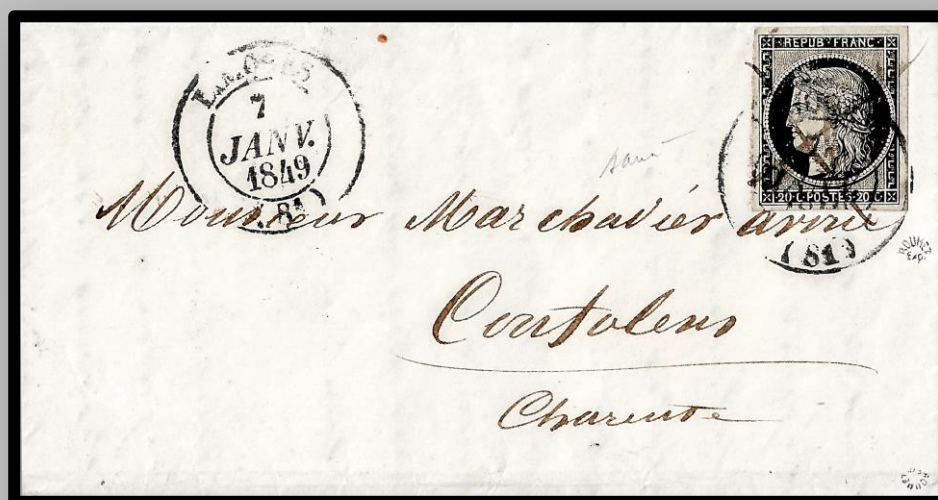 7
JANV.
1849
(81)
REPUB. FRANC.
20.C.POSTES.20.C
(81)
Monsieur Marchadier avoué
Confolens
Charente
ROUMET
Exp.